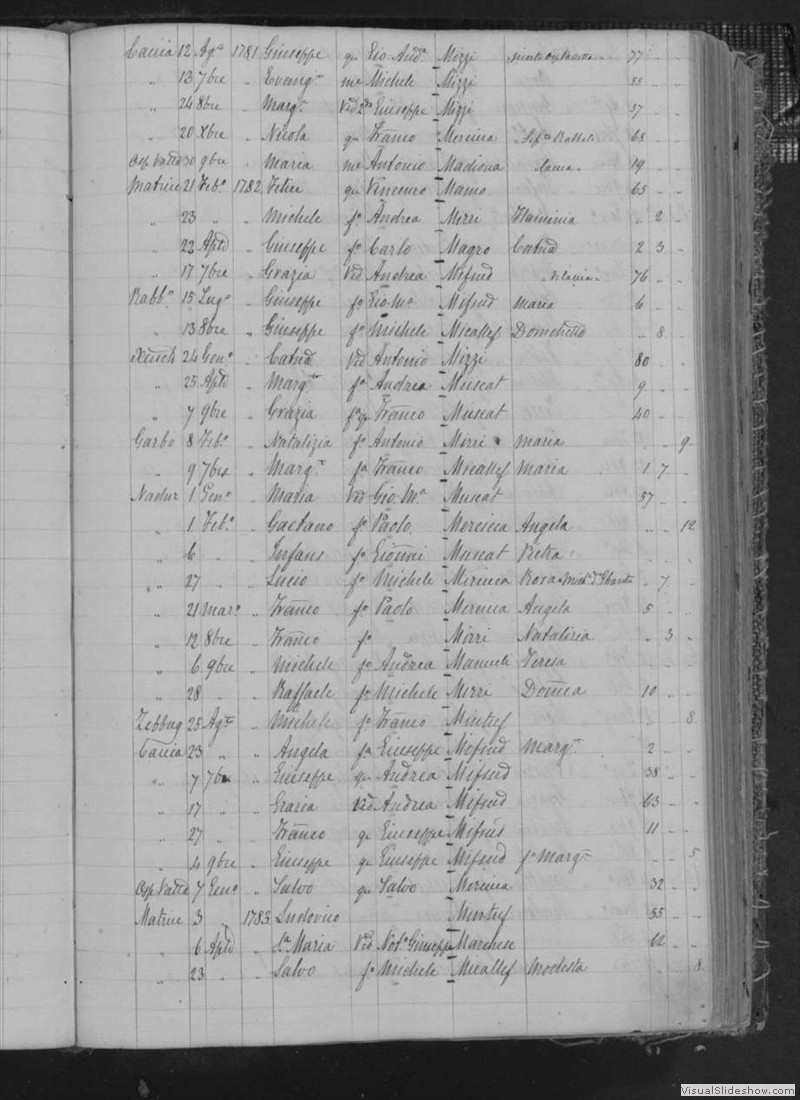 Caccia 12 Ag. 1781 Giuseppe qu Gio And.a Mizzi 77 ..
" 13 7bre " Evang.a me Michele Mizzi 55
" 24 8bre " Marg.a Vid Giuseppe Mizzi 57
" 20 Xbre " Nicola qu Franco Mercieca 68
9bre " Maria me Antonio Madiona 19
Matrice 21 Feb.o 1782 Felice qu Vincenzo Mamo 65
" 23 " " Michele fo Andrea Mizzi Flaminia .. 2 ..
" 22 Aple " Giuseppe fo Carlo Magro Catnã 2 3 ..
" 17 7bre " Grazia Vid Andrea Mifsud 76
Rabb.o 15 Lug.o " Giuseppe fo Gio M.a Mifsud Maria 6
" 13 8bre " Giuseppe fo Michele Micallef .. 8 ..
24 Gen.o " Catnã Vid Antonio Mizzi 80
" 25 Aple " Marg.ta fa Andrea Muscat 9
" 7 9bre " Grazia Franco Muscat 40
Garbo 8 Feb.o " Natalizia fa Antonio Mizzi Maria .. .. 9
" 9 7bre " Marg.a fa Franco Micallef Maria 1 7 ..
Nadur 1 Gen.o " Maria Vid Gio. M.a Muscat 57
" 1 Feb.o " Gaetano fo Paolo Mercieca Angela .. .. 12
" 6 " " Infans fo Gionni Muscat Pietra
" 27 " " Lucio fo Michele Mercieca Rosa .. 7 ..
" 21 Marzo " Franco fo Paolo Mercieca Angela 5
" 12 8bre " Franco fo Mizzi Natalizia .. 3 ..
" 6 9bre " Michele fo Andrea Manueli Teresa
" 28 " " Raffaele fo Michele Mizzi Domca 10
Zebbug 25 Ag.to " Michele fo Franco Mintuf .. .. 8
Caccia 23 " " Angela fa Giuseppe Mifsud Marg.a 2
" 7 7bre " Giuseppe qu Andrea Mifsud 38
" 17 " " Grazia Vid Andrea Mifsud 63
" 27 " " Franco qu Giuseppe Mifsud 11
" 4 9bre " Giuseppe qu Giuseppe Mifsud fo Marg.a .. .. 5
7 Gen.o " Salvo qu Salvo Mercieca 32
Matrice 3 " 1783 Ludovico Mintuf 55
" 6 Aple " S.ra Maria Vid Not.o Giuseppe Marchese 62
" 23 " Salvo fo Michele Micallef Modesta .. .. 8
VisualSlideshow.com